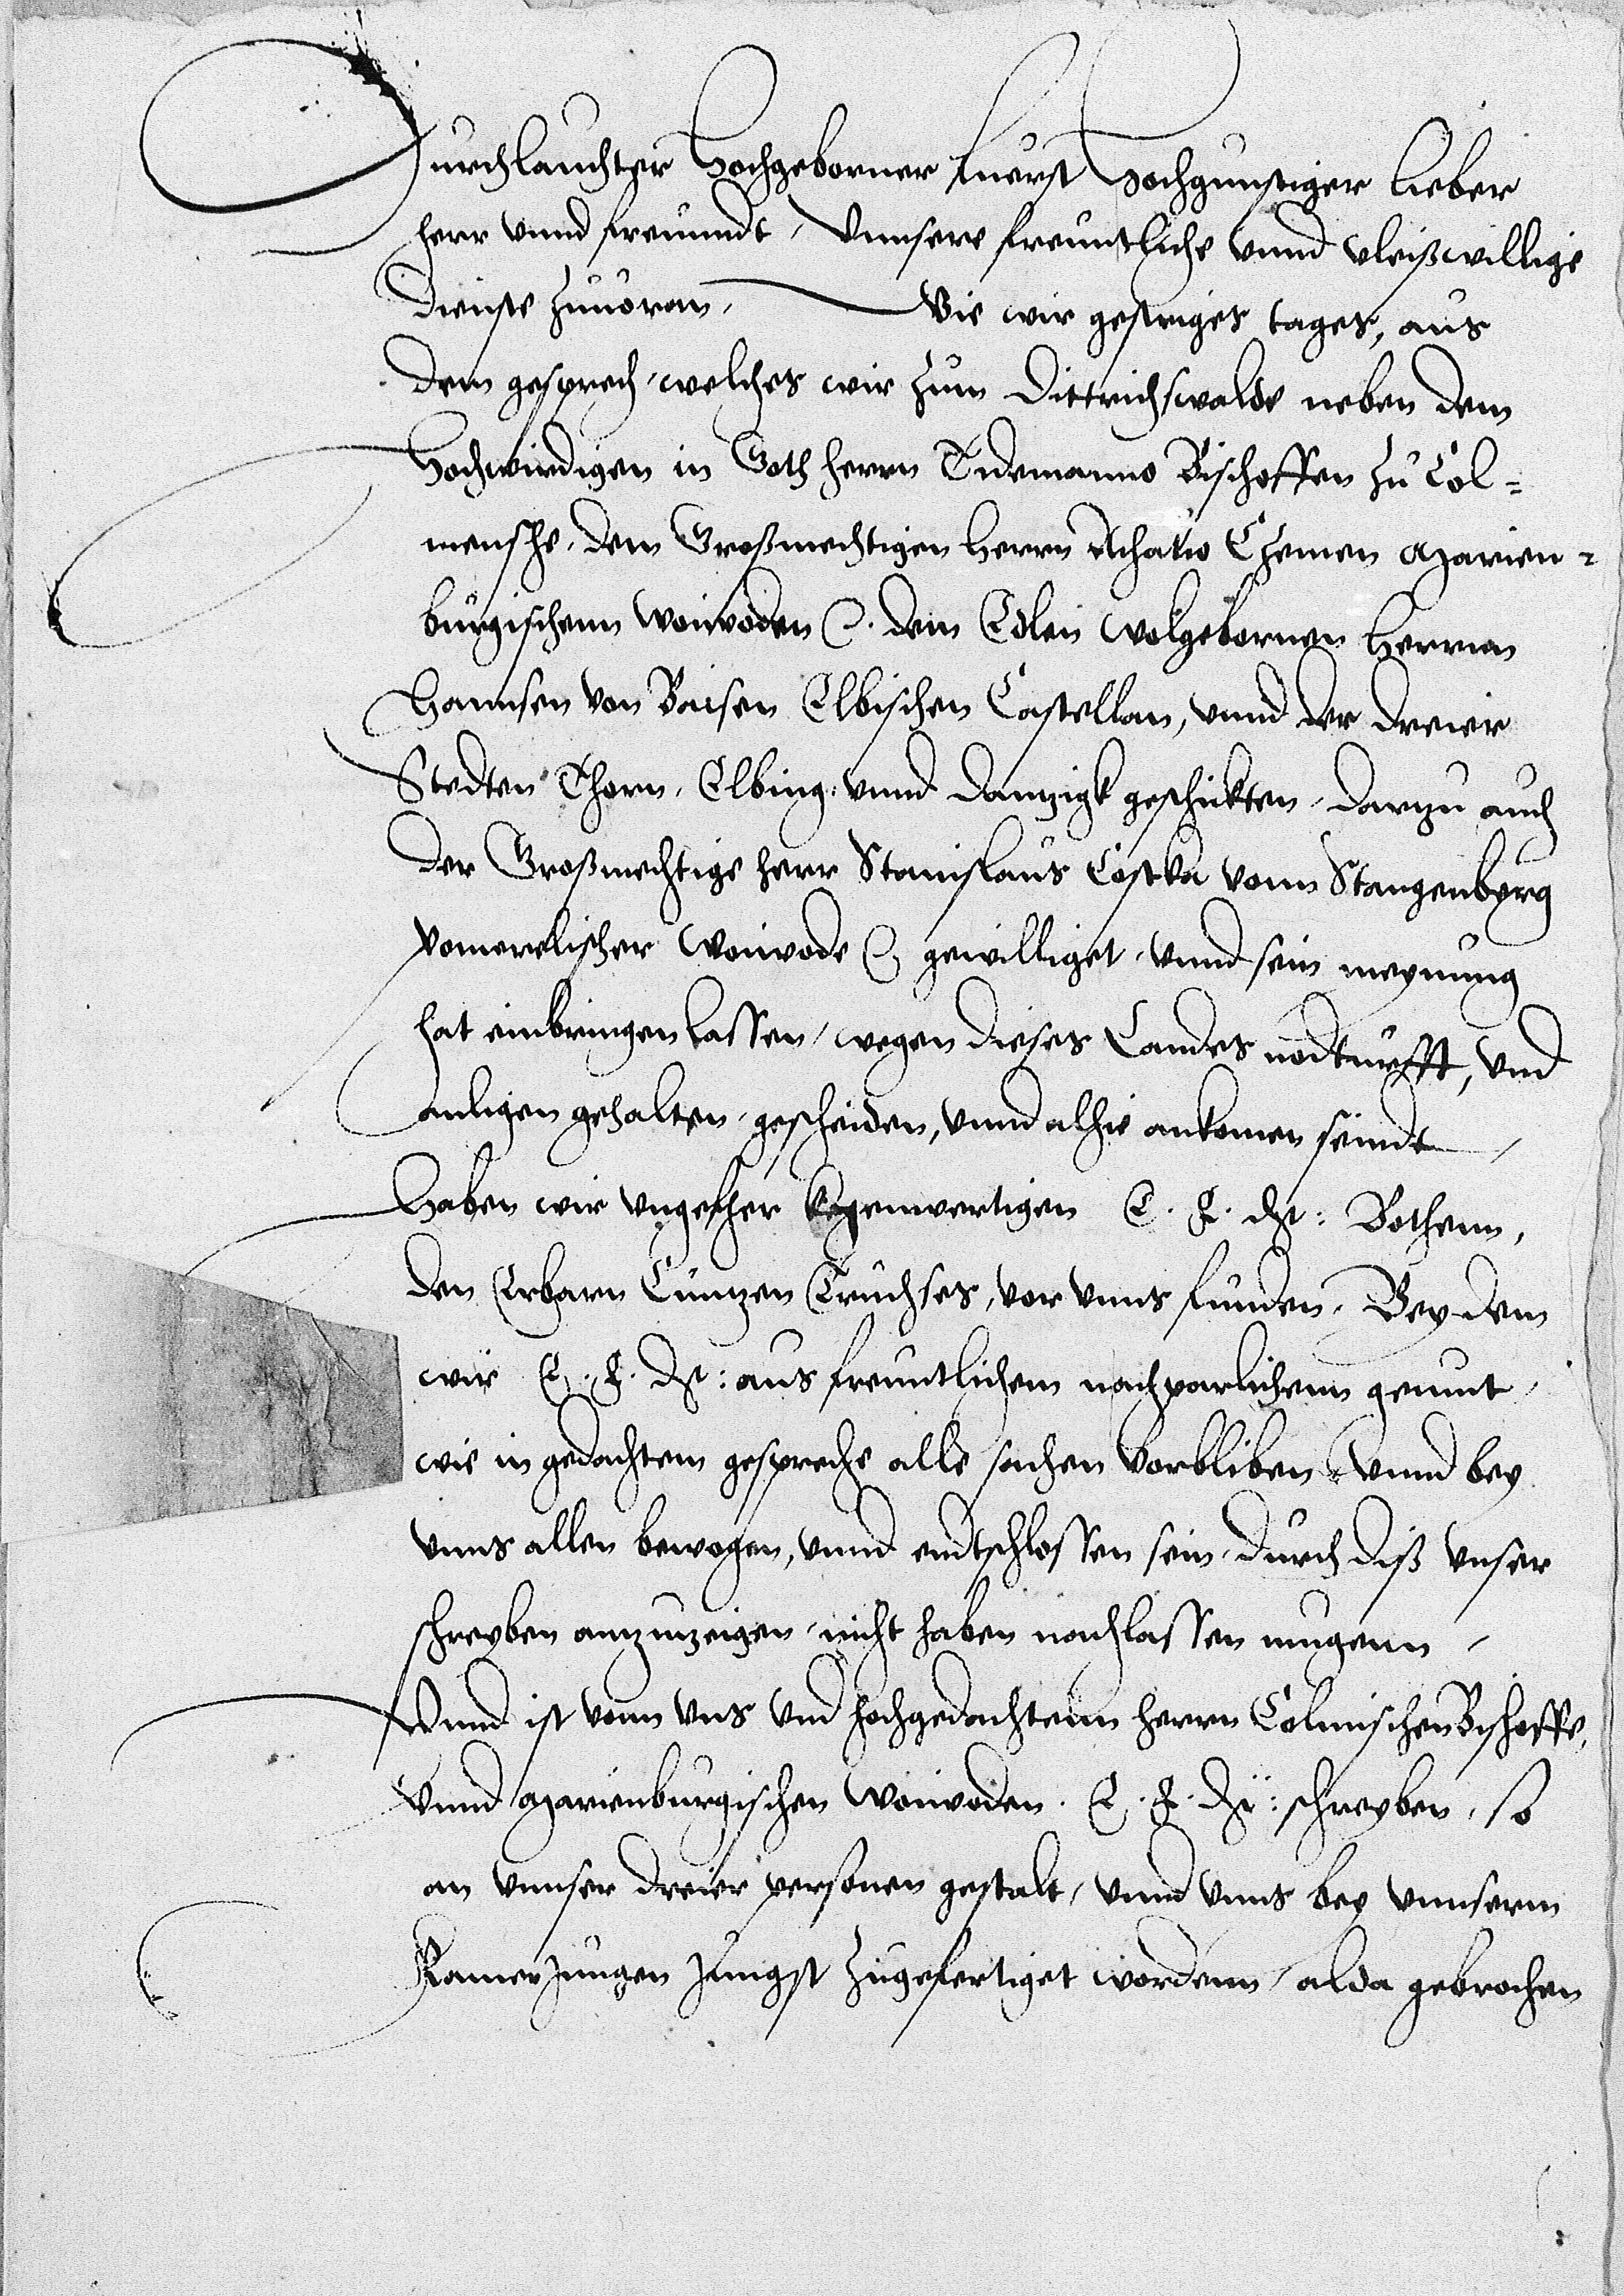 Durchlauchter Hochgeborner Fuerst Hochgunstiger lieber
herr vnnd freuundt, Vnnsere freuntliche vnnd vleißwillige
dienste zuuoran, Wie wir gestriges tages, aus
dem gesprech, welches wir zum Dittrichswalde neben dem
Hochwirdigen in Goth herrn Tidemanno Bischoffen zu Col=
mensehe, dem Großmechtigen herrn Achatio Czemen Marien=
burgischenn woiwoden etc. dem Edlen wolgebornen Herrnn
Hannsen von Baisen Elbischen Castellan, vnnd der dreier
Stedten Thorn, Elbing, vnnd Danzigk geschickten, darzu auch
der Großmechtige herr Stanislaus Costka vonn Stangenberg
pomerelischer woiwode etc gewilliget, vnnd sein meynung
hat einbringen lassen, wegen dieses Landes nodturfft, vnd
anligen gehalten, gescheiden, vnnd alhie ankomen seindt,
Haben wir vngefher kegenwertigen E. F. Dt: Bothenn,
den Erbarn Cunzen Truchses, vor vnns funden, Bey dem
wir E. F. Dt: aus freuntlichem nachparlichenn gemut,
wie in gedachtem gespreche alle sachen vorbliben, vnnd bey
vnns allen bewogen, vnnd endtschlossen sein, durch diß vnser
schreyben anzuzeigen, nicht haben nachlassen mugenn,
Vnnd ist vonn vns vnd hochgedachtenn herrn Colmischen Bischoffe,
Vnnd Marienburgischen woiwoden. E. F. Dt: schreyben, so
an vnnser dreier personen gestalt, vnnd vnns bey vnnserm
Kamerjungen jungst zugefertiget wordenn, alda gebrochen